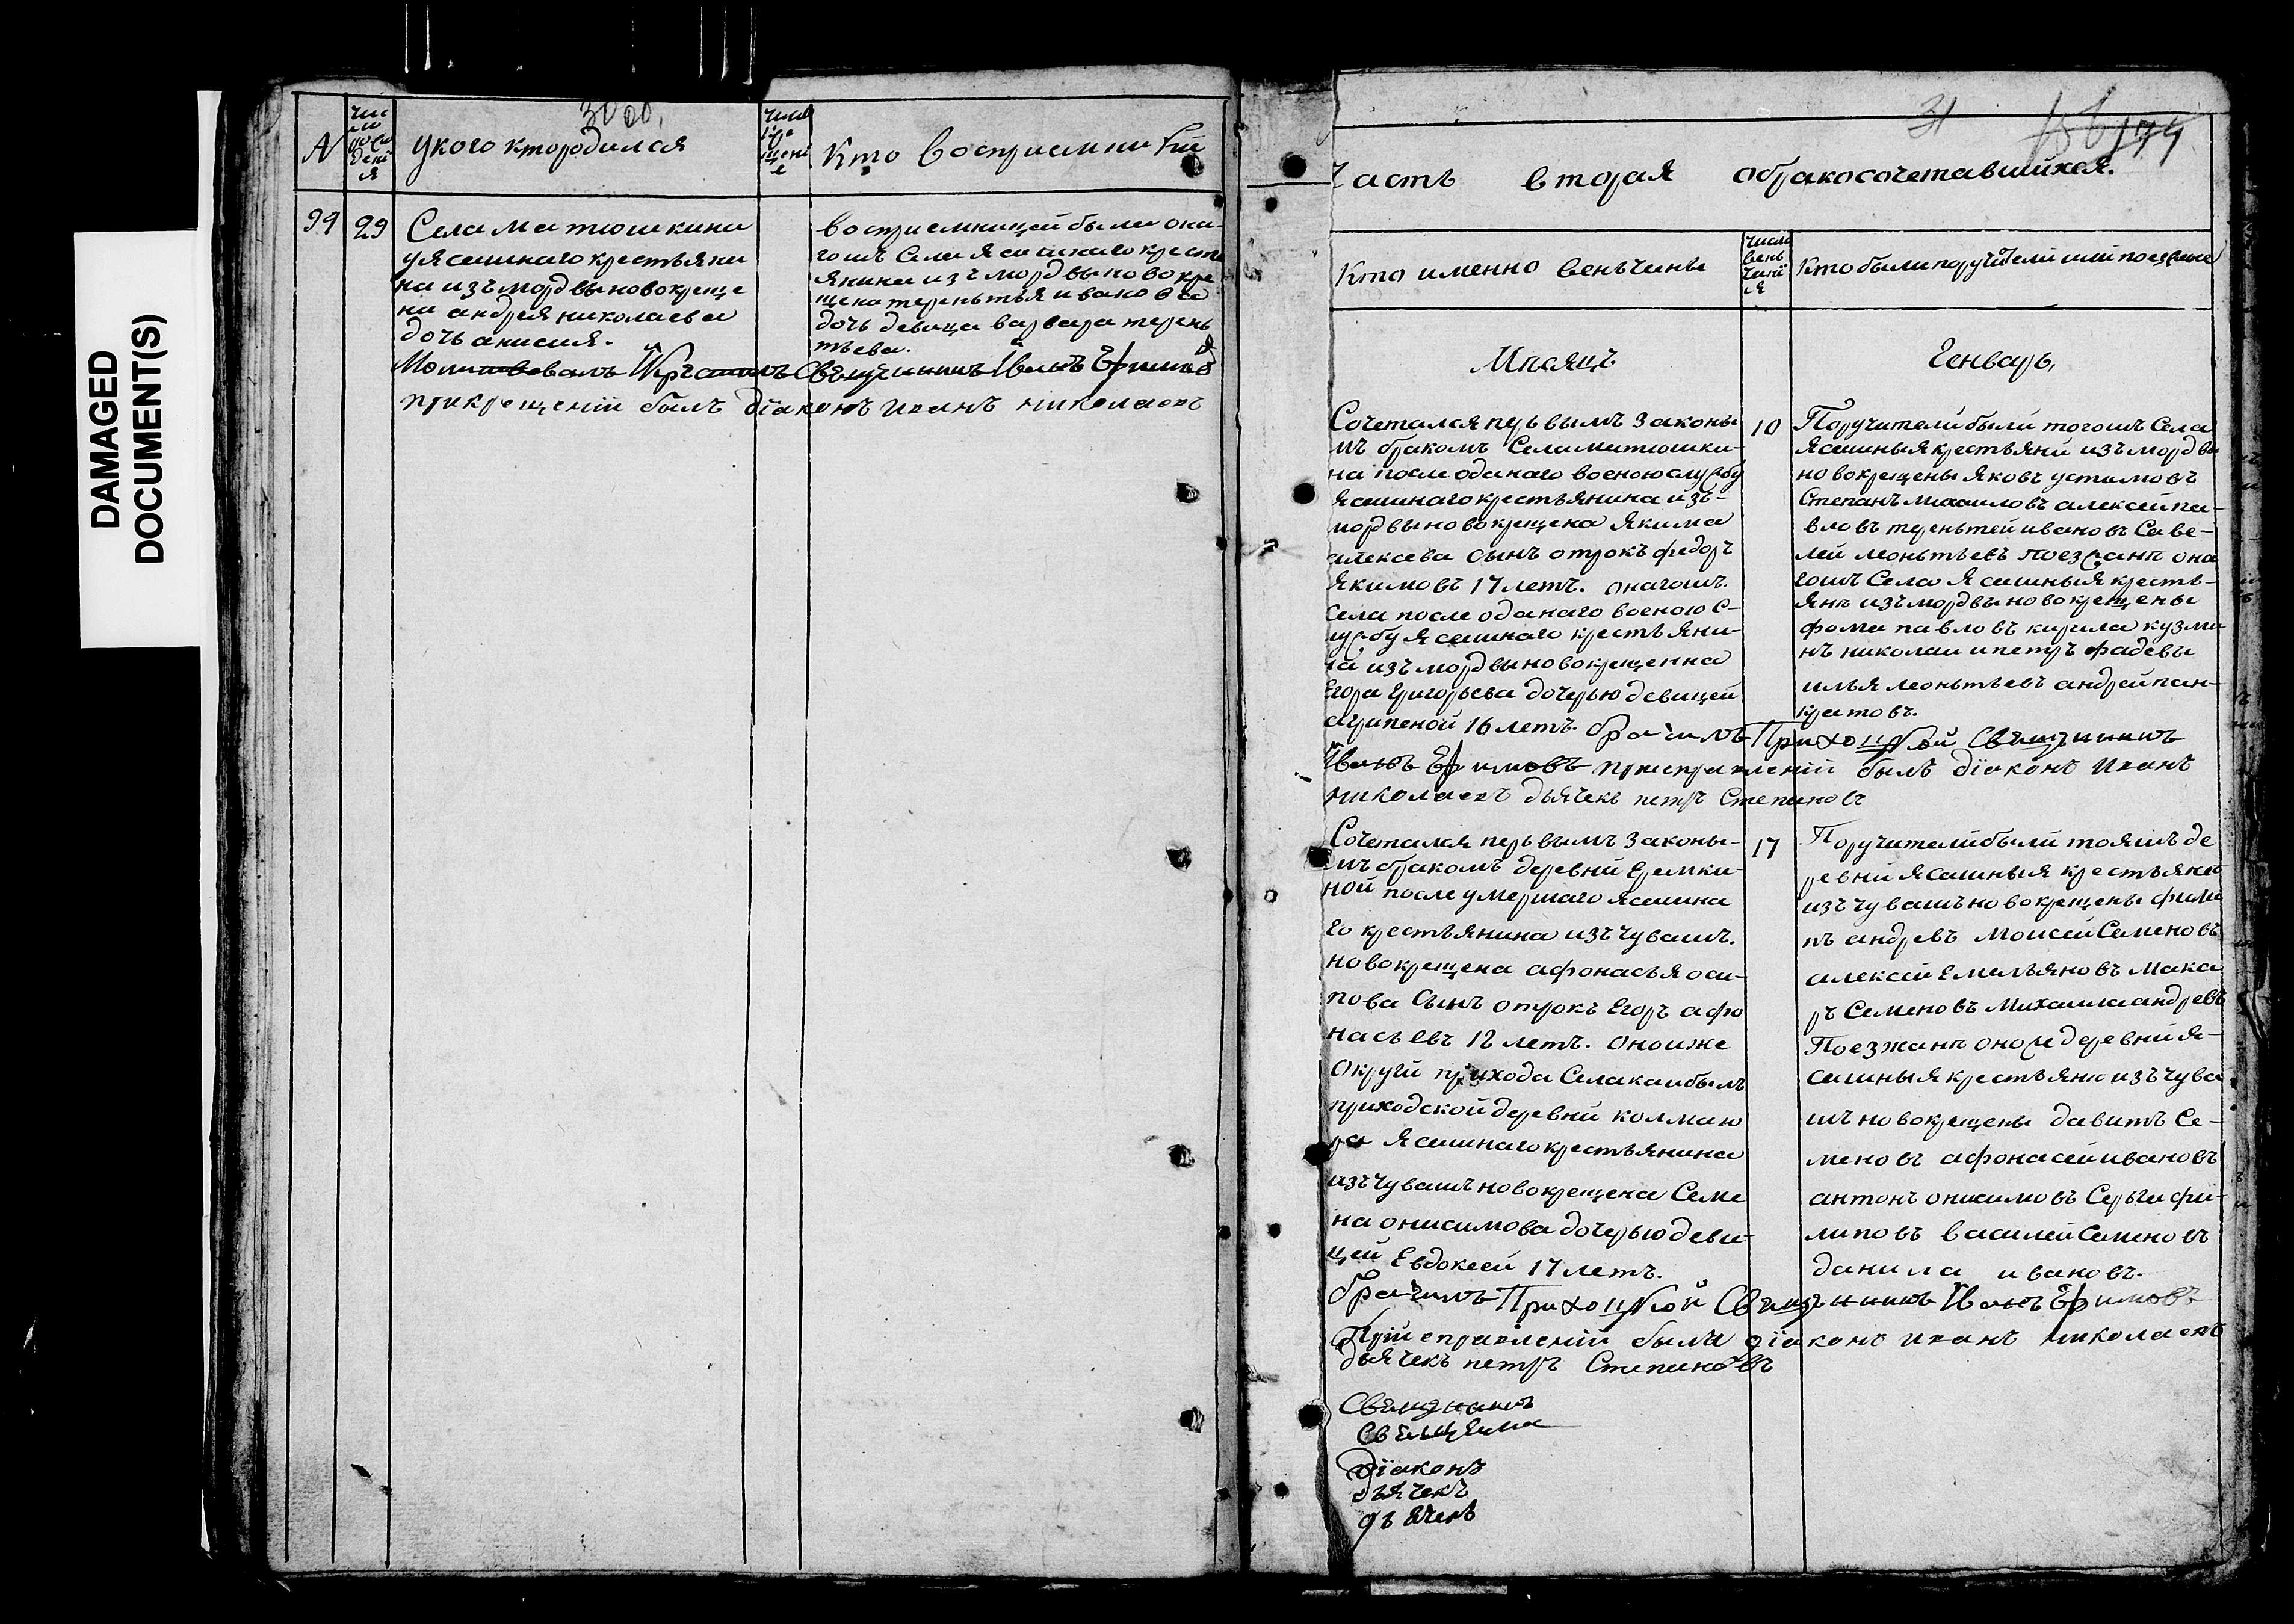 DAMAGED
DOCUMENT(S)
30 об.
№
число рождения
укого ктородился
число крещения
Кто восприемники
99
29
Села матюшкина
уясашнаго крестьяни
на изъ мордвы новокреще
на андрея николаева
дочь анисия.
восприемницей была она
гошъ Села ясашнаго кресть
янина изъ мордвы новокре
щена терентья иванова
дочь девица варвара терень
тьева.
Молитвовалъ И Крестилъ Священникъ Иванъ Ефимовъ
прикрещении былъ диаконъ иванъ николаевъ
31
174
Часть вторая обракосочетавшихся.
Кто именно венъчаны
число веньчания
Кто были поручители или поезжане
Мѣсяцъ
Генварь,
Сочетался первымъ законы
мъ бракомъ Села матюшки-
на после оданаго военою службу
ясашнаго крестьянина изъ-
мордвы новокрещена якима
алексева сынъ отрокъ федоръ
якимовъ 17 летъ. онагошъ
села после оданаго военою с-
лужбу ясашнаго крестьяни-
на изъ мордвы новокрещенна
Егора григорьева дочерью девицей
агрипеной 16 летъ.
10
Поручители были тогошъ Села
Ясашныя крестьяни изъ мордвы
новокрещены яковъ устимовъ
Степанъ михаиловъ алексей па-
вловъ терентей ивановъ Саве-
лей леонтьевъ поезжанъ она
гошъ Села Ясашныя кресть-
янъ изъ мордвы новокрещены
фома павловъ кирила кузми
нъ николаи ипетръ фадевы
илья леонтьевъ андрей пан-
кратовъ.
брачилъ Приходской Священникъ
Иванъ Ефимовъ приотправлении былъ диаконъ иванъ
николаевъ дьячекъ петръ Степановъ
Сочетался первымъ законы-
мъ бракомъ деревни Еремки-
ной после умершаго ясашна
го крестьянина изъ чувашъ.
новокрещена афонасья оси-
пова Сынъ отрокъ Егоръ афо
насьевъ 12 летъ. оноиже
округи прихода Села каибылъ
приходской деревни колмаю
ра Ясашнаго крестьянина
изъ чувашъ новокрещена Семе
на онисимова дочерью деви-
цей Евдокеей 17 летъ.
17
Поручители были тояшъ де
ревни Ясашныя крестьяне
изъ чувашъ новокрещены фили
пъ андревъ Моисей Семеновъ
алексей Емельяновъ Мака
ръ Семеновъ Михаила андревъ
Поезжанъ оноиже деревни я-
сашныя крестьяни изъ чува
шъ новокрещены давитъ Се-
меновъ афонасей ивановъ
антонъ онисимовъ Серьги фи-
липовъ василей Семеновъ
данила ивановъ.
брачилъ Приходской Священникъ Иванъ Ефимовъ
При справлении были диаконъ иванъ николаевъ
дьячекъ петръ Степановъ
Священникъ
Священа
Диаконъ
дьячекъ
дьячекъ